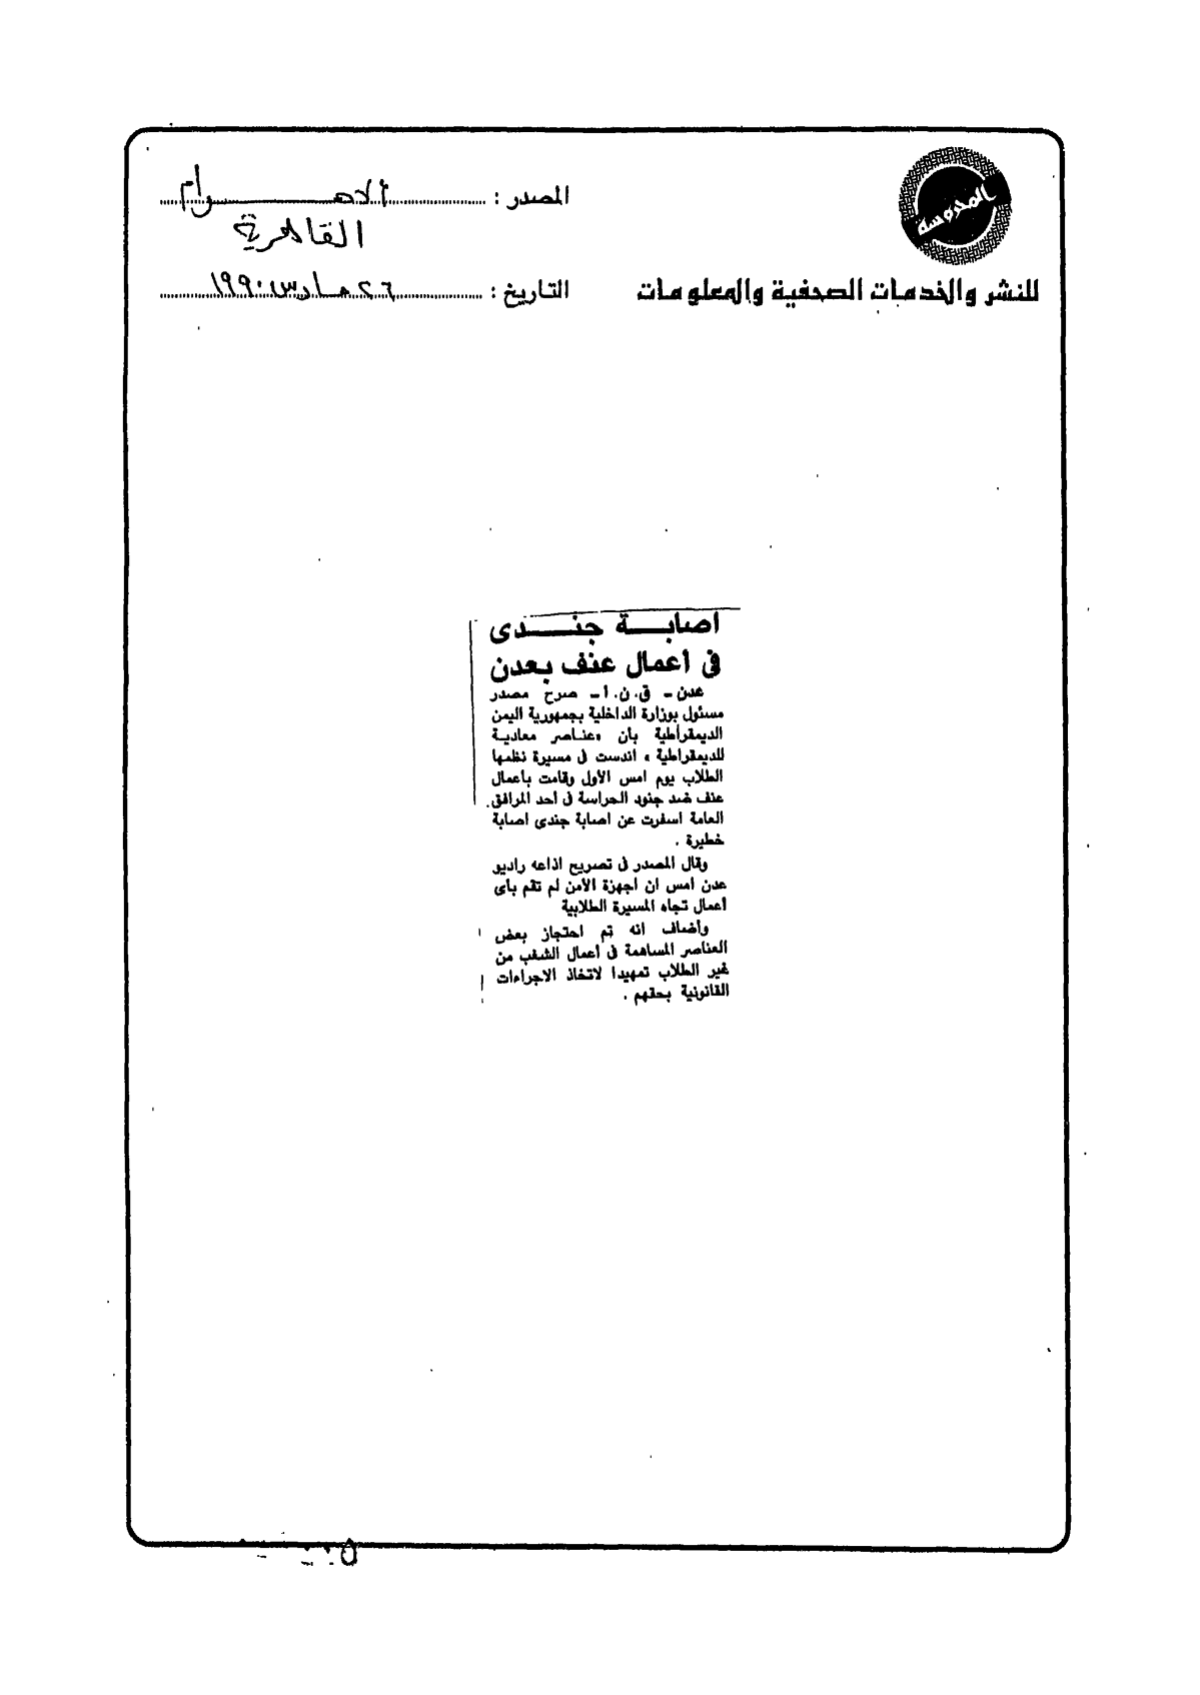 المحروسة
للنشر والخدمات الصحفية والمعلومات
المصدر : الاهرام
القاهرية
التاريخ : ٢٦ مارس ١٩٩٠
اصابة جندى
فى أعمال عنف بعدن
عدن - ق . ن . أ - صرح مصدر
مسئول بوزارة الداخلية بجمهورية اليمن
الديمقراطية بان «عناصر معادية
للديمقراطية » اندست فى مسيرة نظمها
الطلاب يوم امس الأول وقامت بأعمال
عنف ضد جنود الحراسة فى أحد المرافق
العامة اسفرت عن اصابة جندى اصابة
خطيرة .
وقال المصدر فى تصريح اذاعه راديو
عدن امس ان أجهزة الأمن لم تقم باى
أعمال تجاه المسيرة الطلابية
وأضاف انه تم احتجاز بعض
العناصر المساهمة فى أعمال الشغب من
غير الطلاب تمهيدا لاتخاذ الاجراءات
القانونية بحقهم .